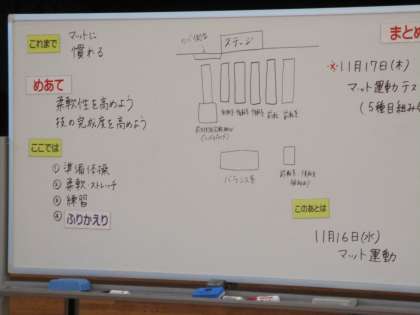 これまで
マットに
慣れる
めあて
柔軟性を高めよう
技の完成度を高めよう
ここでは
① 準備体操
② 柔軟 ストレッチ
③ 練習
④ ふりかえり
ステージ
バランス系
まとめ
※11月17日(木)
マット運動 テス
(5種目組み
このあとは
11月16日(水)
マット運動